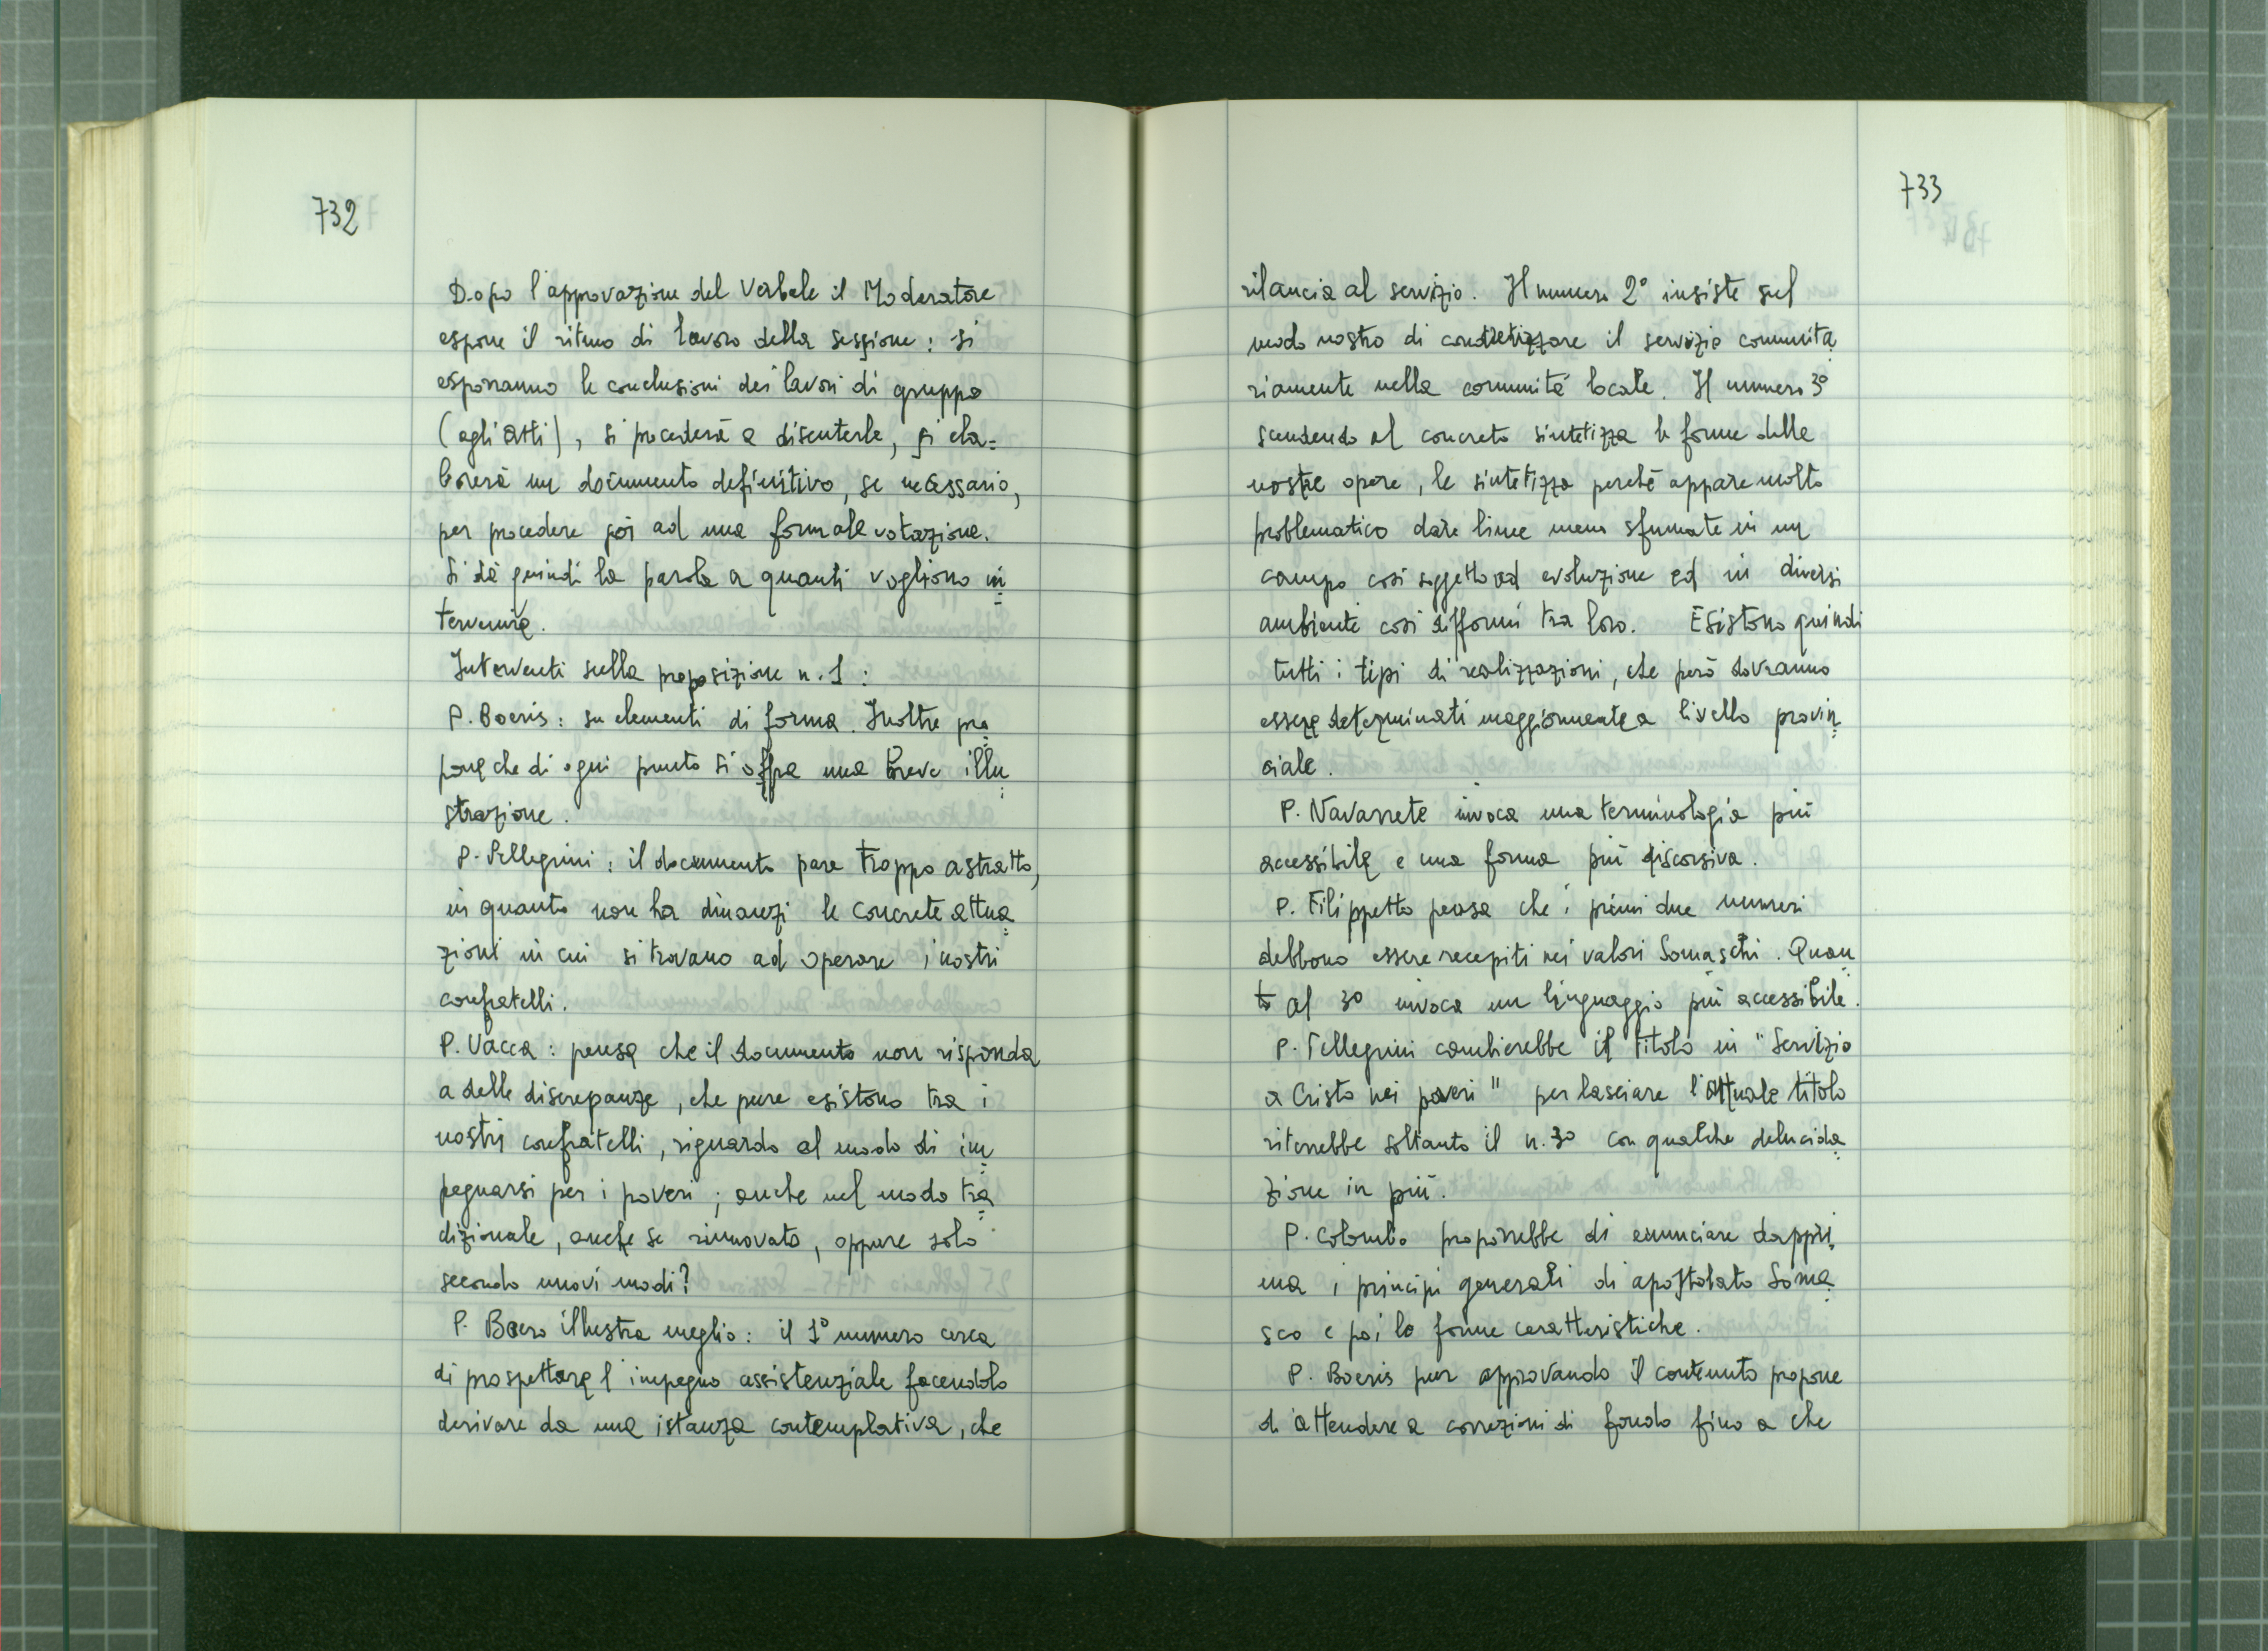 732
Dopo l'approvazione del Verbale il Moderatore
espone il ritmo di lavoro della sessione: si
esporranno le conclusioni dei lavori di gruppo
(agli atti), si procederà a discuterle, si ela=
borerà un documento definitivo, se necessario,
per procedere poi ad una formale votazione.
Si dà quindi la parola a quanti vogliono in=
tervenire.
Interventi sulla proposizione n. 1:
P. Boeris: su elementi di forma. Inoltre pro=
pone che di ogni punto si offra una breve illu=
strazione.
P. Pellegrini: il documento pare troppo astratto,
in quanto non ha dinanzi le concrete attua=
zioni in cui si trovano ad operare i nostri
confratelli.
P. Vacca: pensa che il documento non risponda
a delle discrepanze, che pure esistono tra i
nostri confratelli, riguardo al modo di im=
pegnarsi per i poveri; anche nel modo tra=
dizionale, anche se rinnovato, oppure solo
secondo nuovi modi?
P. Boero illustra meglio: il 1° numero cerca
di prospettare l'impegno assistenziale facendolo
derivare da una istanza contemplativa, che
733
rilancia al servizio. Il numero 2° insiste sul
modo nostro di concretizzare il servizio comunita=
riamente nella comunità locale. Il numero 3°
scendendo al concreto sintetizza le forme delle
nostre opere, le sintetizza perché appare molto
problematico dare linee meno sfumate in un
campo così soggetto ad evoluzione ed in diversi
ambienti così difformi tra loro. Esistono quindi
tutti i tipi di realizzazioni, che però dovranno
essere determinati maggiormente a livello provin=
ciale.
P. Navarrete invoca una terminologia più
accessibile e una forma più discorsiva.
P. Filippetto pensa che i primi due numeri
debbono essere recepiti nei valori Somaschi. Quan=
to al 3° invoca un linguaggio più accessibile.
P. Pellegrini cambierebbe il titolo in "Servizio
a Cristo nei poveri" per lasciare l'attuale titolo
riterrebbe soltanto il n. 3° con qualche delucida=
zione in più.
P. Colombo proporrebbe di enunciare dappri=
ma i principi generali di apostolato Soma=
sco e poi le forme caratteristiche.
P. Boeris pur approvando il contenuto propone
di attendere a correzioni di fondo fino a che